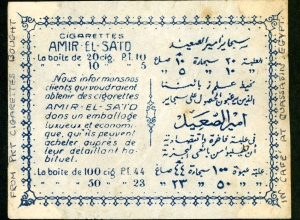 CIGARETTES
AMIR-EL-SAID
La boîte de 20 cig. P.T. 10
" " 10 " " 5
Nous informons nos
clients qui voudraient
obtenir des cigarettes
AMIR-EL-SAID
dans un emballage
luxueux et économi-
que, qu'ils peuvent
acheter auprès de
leur détaillant ha-
bituel.
La boîte de 100 cig. P.T. 44
" " 50 " " 23
سجاير أمير الصعيد
العلبة ٢٠ سيجارة ١٠ صاغ
" ١٠ " ٥ "
نحيط علم زبائننا
الذين يرغبون الحصول على سجاير
أمير الصعيد
في علبة فاخرة
علبة ١٠٠ سيجارة ٤٤ صاغ
" ٥٠ " ٢٣ "
FROM PKT CIGARETTES BOUGHT
IN CAFE AT QUASSASIN, EGYPT.